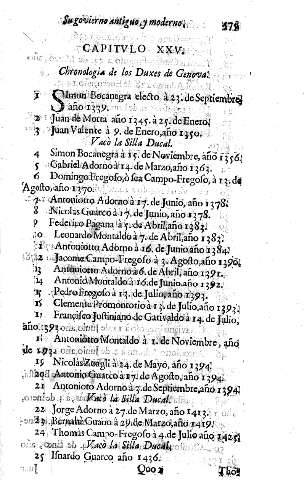 Su govierno antiguo, y moderno. 475
CAPITVLO XXV.
Chronologia de los Duxes de Genova.
1 Simon Bocanegra electo à 23. de Septiembre,
año 1339.
2 Juan de Morta año 1345. à 25. de Enero.
3 Juan Valente à 9. de Enero, año 1350.
Vacò la Silla Ducal.
4 Simon Bocanegra à 15. de Noviembre, año 1356.
5 Gabriel Adorno à 14. de Marzo, año 1363.
6 Domingo Fregoso, ò sea Campo-Fregoso, à 13. de
Agosto, año 1370.
7 Antoniotto Adorno à 17. de Junio, año 1378.
8 Nicolas Guarco à 17. de Junio, año 1378.
9 Federico Pagana à 5. de Abril, año 1383.
10 Leonardo Montaldo à 7. de Abril, año 1383.
11 Antoniotto Adorno à 16. de Junio año 1384.
12 Jacome Campo-Fregoso à 3. Agosto, año 1390.
13 Antoniotto Adorno à 6. de Abril, año 1391.
14 Antonio Montaldo à 16. de Junio año 1392.
Pedro Fregoso à 13. de Julio, año 1393.
16 Clemente Promontorio à 13. de Julio, año 1393.
17 Francisco Justiniano de Garivaldo à 14. de Julio,
año 1393.
Antonio Montaldo à 1. de Noviembre, año
de 1393.
19 Nicolas Zuogli à 24. de Mayo, año 1394.
20 Antonio Guarco à 17. de Agosto, año 1394.
21 Antonioto Adorno à 3. de Septiembre, año 1394.
Vacò la Silla Ducal.
22 Jorge Adorno à 27. de Marzo, año 1413.
23 Bernabè Guano à 29. de Marzo, año 1419.
24 Thomas Campo-Fregoso à 4. de Julio año 1425.
Vacò la Silla Ducal.
25 Isnardo Guarco año 1436.
Qoo 2 Tho-